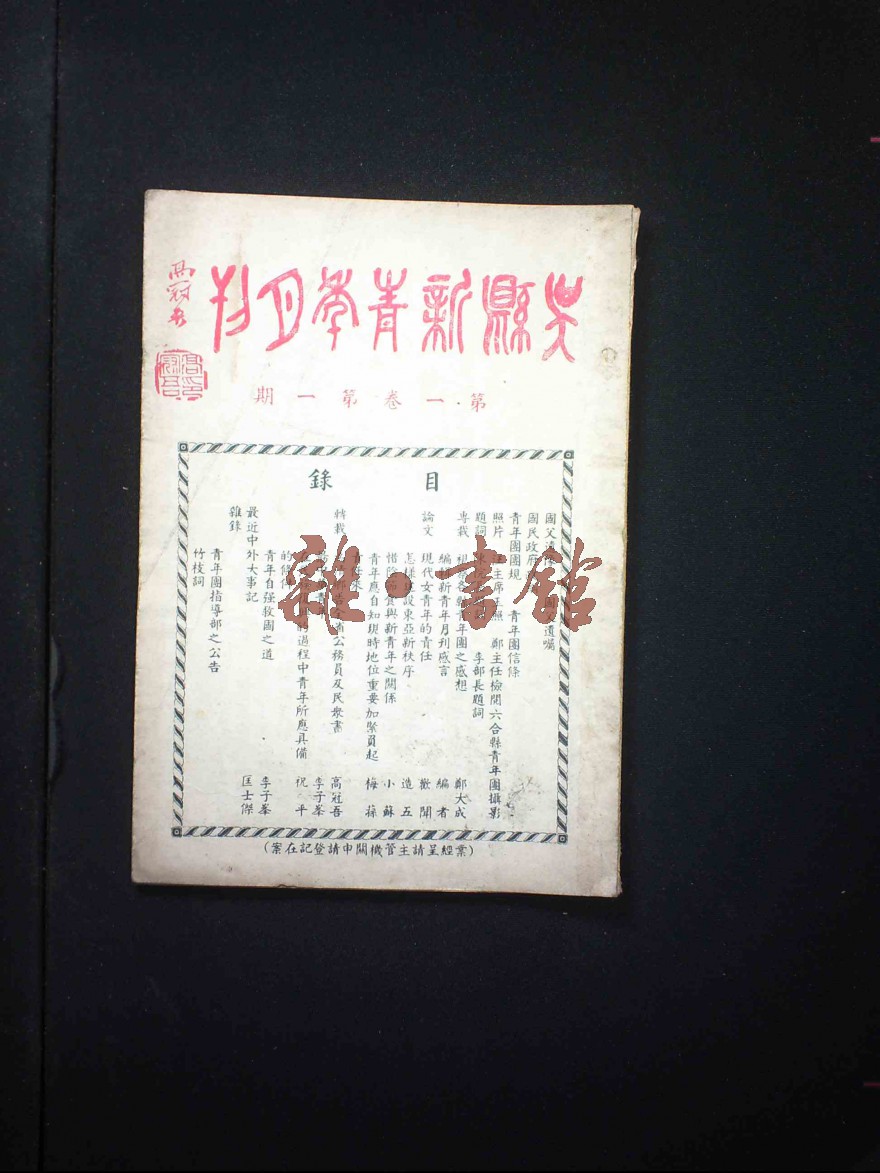 吳縣新青年月刊
高冠吾
第一卷第一期
目錄
國父遺
國民政府
青年團團規 青年團信條
照片 主席 照 鄭主任檢閱六合縣青年團攝影
題詞 李部長題詞
專載 青年團之感想 鄭大成
編 新青年月刊感言 編者
論文 現代女青年的責任 歡開
怎樣建設東亞新秩序 造五
惜陰 與新青年之關係 小蘇
青年應自知現時地位重要加緊負起 梅蓀
責任來
轉載 公務員及民衆書 高冠吾
李子峯
過程中青年所應具備 祝平
的條件
青年自强救國之道 李子峯
最近中外大事記 匡士傑
雜錄
青年團指導部之公告
竹枝詞
(業經呈請主管機關申請登記在案)
雜·書館